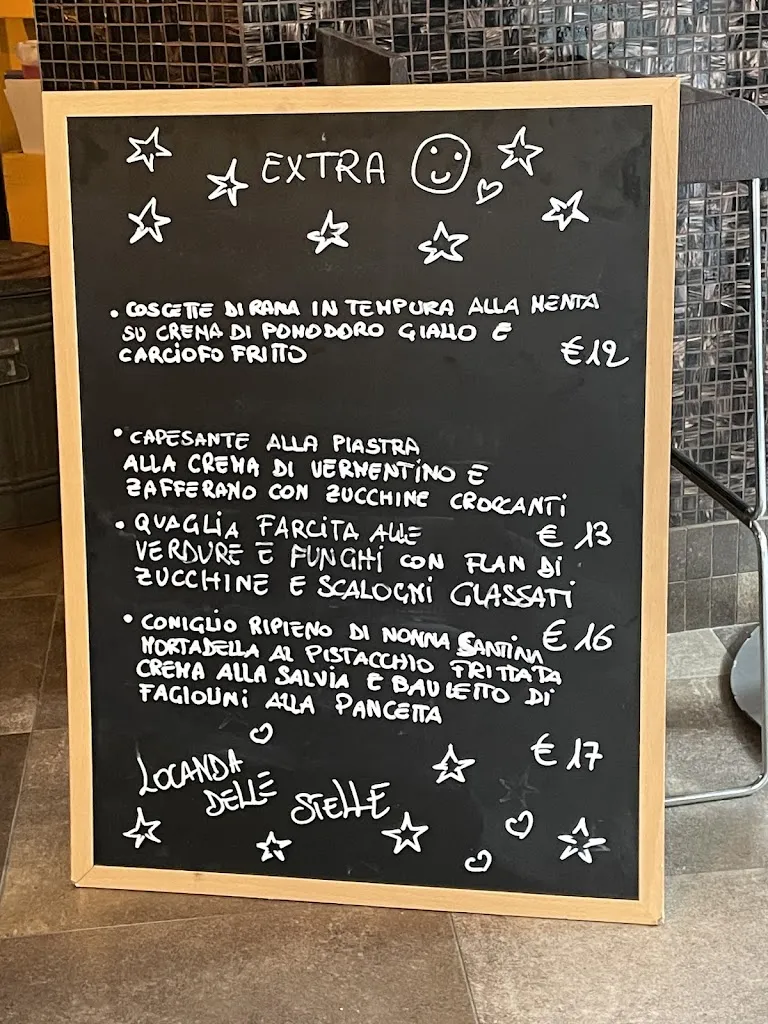 EXTRA
• COSCETTE DI RANA IN TEMPURA ALLA MENTA
SU CREMA DI POMODORO GIALLO E
CARCIOFO FRITTO
€12
• CAPESANTE ALLA PIASTRA
ALLA CREMA DI VERMENTINO E
ZAFFERANO CON ZUCCHINE CROCCANTI
€ 13
• QUAGLIA FARCITA ALLE
VERDURE E FUNGHI CON FLAN DI
ZUCCHINE E SCALOGNI GLASSATI
€ 16
• CONIGLIO RIPIENO DI NONNA SANTINA
MORTADELLA AL PISTACCHIO FRITTATA
CREMA ALLA SALVIA E BAULETTO DI
FAGIOLINI ALLA PANCETTA
€ 17
LOCANDA
DELLE STELLE